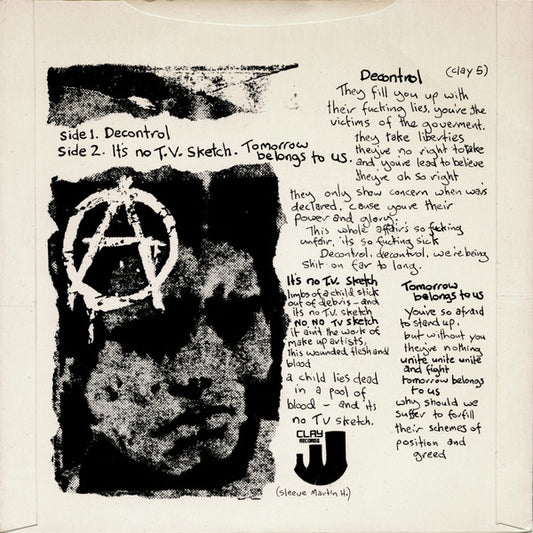 Side 1. Decontrol
Side 2. It's no T.V. Sketch. Tomorrow
belongs to us.
Decontrol (clay 5)
They fill you up with
their fucking lies, you're the
victims of the goverment.
they take liberties
they've no right to take
and you're lead to believe
they're oh so right
they only show concern when war's
declared, 'cause you're their
power and glory.
This whole affair's so fucking
unfair, its so fucking sick
Decontrol, decontrol, we're being
shit on far to long.
It's no T.V. Sketch
limbs of a child stick
out of debris - and
its no T.V. sketch
NO, NO TV sketch
it aint the work of
make up artists,
this wounded flesh and
blood
a child lies dead
in a pool of
blood - and its
no TV sketch.
Tomorrow
belongs to us
You're so afraid
to stand up,
but without you
they're nothing
unite unite unite
and fight
tomorrow belongs
to us
why should we
suffer to forfill
their schemes of
position and
greed
CLAY
RECORDS
(Sleeve Martin H.)